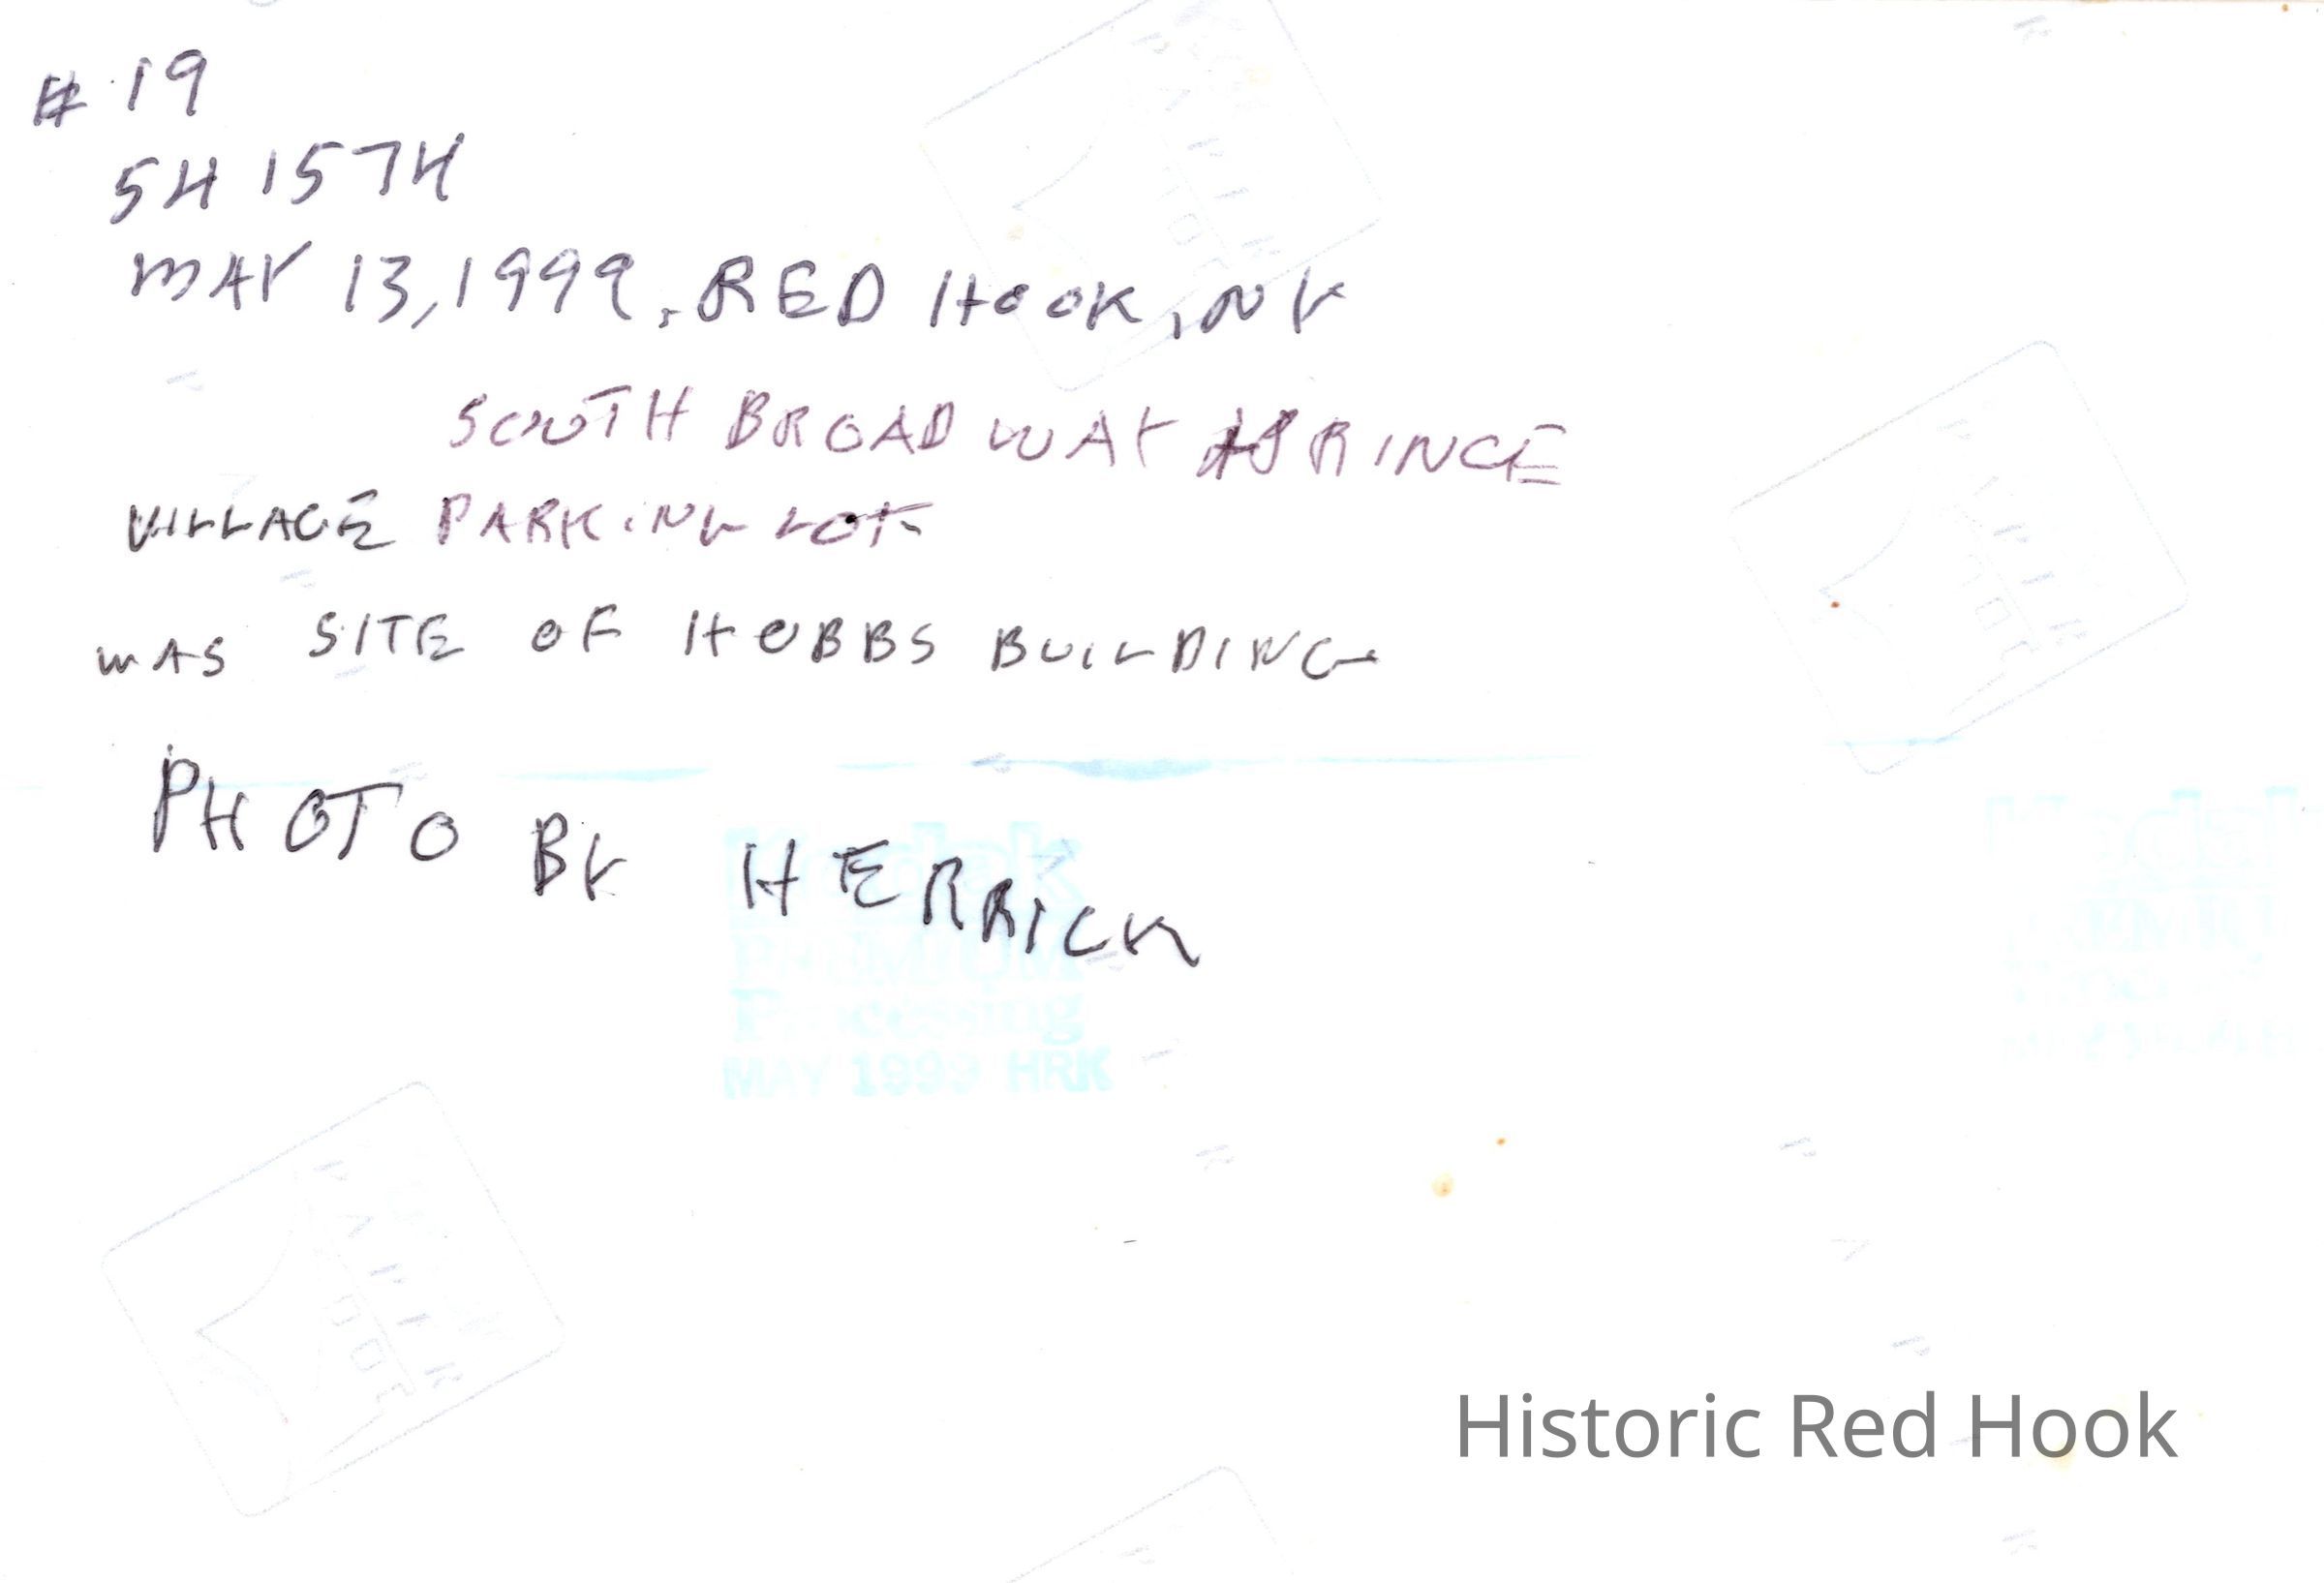 # 19
54 1574
MAY 13, 1999, RED HOOK, NY
SOUTH BROADWAY PRINCE
VILLAGE PARKING LOT
WAS SITE OF HOBBS BUILDING
PHOTO BY HERRICK
Kodak
PREMIUM
Processing
MAY 1999 HRK
Historic Red Hook